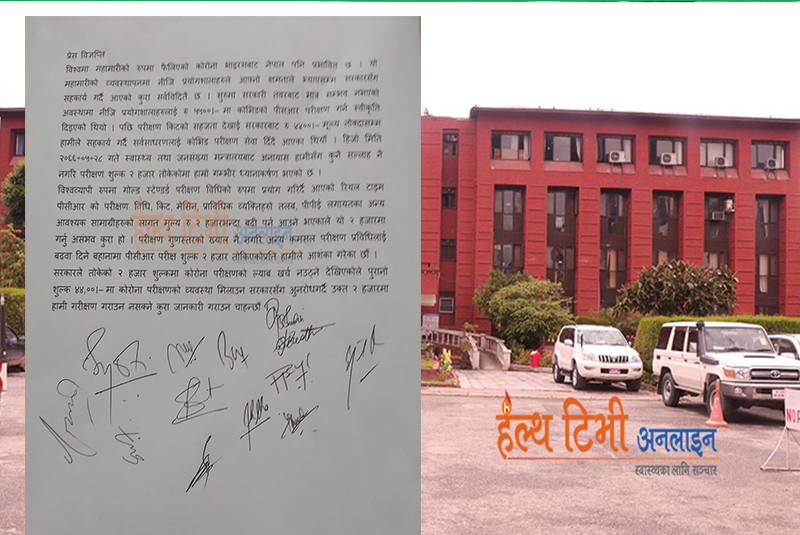 प्रेस विज्ञप्ति
विश्वमा महामारीको रुपमा फैलिएको कोरोना भाइरसबाट नेपाल पनि प्रभावित छ । यो
महामारीको व्यवस्थापनमा नीजि प्रयोगशालाहरुले आफ्नो क्षमताले भ्याएसम्म सरकारसँग
सहकार्य गर्दै आएको कुरा सर्वविदितै छ । सुरुमा सरकारी तवरबाट मात्र सम्भव नभएको
अवस्थामा नीजि प्रयोगशालाहरुलाई रु ५५००/- मा कोभिडको पीसीआर परीक्षण गर्न स्वीकृति
दिइएको थियो । पछि परीक्षण किटको सहजता देखाई सरकारबाट रु ४४००/- मूल्य तोक्दासम्म
हामीले सहकार्य गर्दै सर्वसाधरणलाई कोभिड परीक्षण सेवा दिँदै आएका थियौं । हिजो मिति
२०७७-०५-२८ गते स्वास्थ्य तथा जनसंख्या मन्त्रालयबाट अनायास हामीसँग कुनै सल्लाह नै
नगरि परीक्षण शुल्क २ हजारतोकेकोमा हामो गम्भीर ध्यानाकर्षण भएको छ ।
विश्वव्यापी रुपमा गोल्ड स्टेण्डर्ड परीक्षण विधिको रुपमा प्रयोग गरिर्दै आएको रियल टाइम
पीसीआर को परीक्षण विधि, किट, मेसिन, प्राविधिक व्यक्तिहरुको तलब, पीपीई लगायतका अन्य
आवश्यक सामाग्रीहरुको लागत मुल्य रु २ हजारभन्दा बढी पर्न आउने भएकाले यो २ हजारमा
गर्नु असंभव कुरा हो । परीक्षण गुणस्तरको ख्याल नै नगरि अन्य कमसल परीक्षण प्रविधिलाई
बढवा दिने बहानामा पीसीआर परीक्ष शुल्क २ हजार तोकिएकोप्रति हामीले आशंका गरेका छौं ।
सरकारले तोकेको २ हजार शुल्कमा कोरोना परीक्षणको ल्याब खर्च नउठ्ने देखिएकोले पुरानो
शुल्क ४४,००/- मा कोरोना परीक्षणको व्यवस्था मिलाउन सरकारसँग अुनरोधगर्दै उक्त २ हजारमा
हामी परीक्षण गराउन नसक्ने कुरा जानकारी गराउन चाहन्छौं
हेल्थ टिभी अनलाइन
हेल्थ टिभी अनलाइन
स्वास्थ्यका लागि सञ्चार